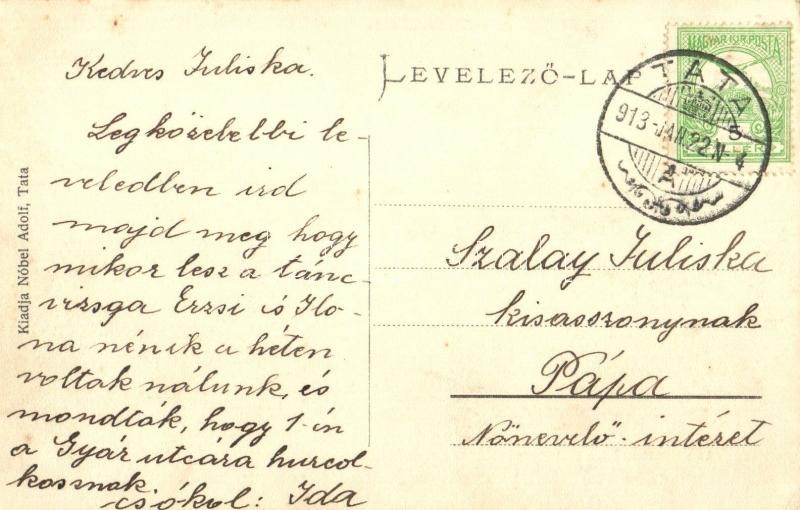 Kedves Juliska.
Legközelebbi le-
veledben ird
majd meg hogy
mikor lesz a tánc-
vizsga Erzsi és Ilo-
na nénik a héten
voltak nálunk, és
mondták, hogy 1-én
a Gyár utcára hurcol-
kosznak.
csókol: Ida
Kiadja Nóbel Adolf, Tata
LEVELEZŐ-LAP
MAGYAR KIR. POSTA
TATA
913 JAN. 22 N 4
A
5
Szalay Juliska
kisasszonynak
Pápa
Nőnevelő-intézet